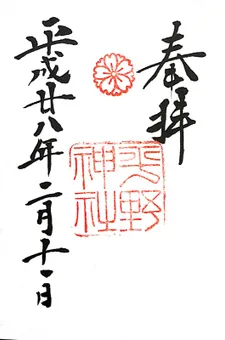 奉拝
平野神社
平成廿八年二月十一日